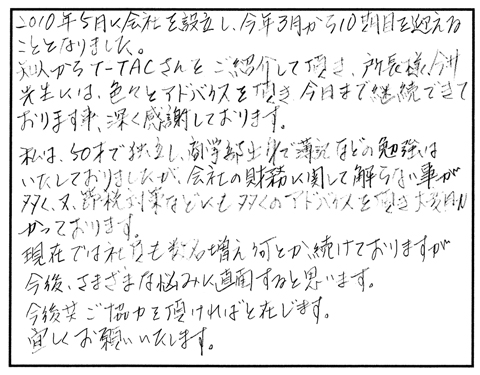 2010年5月に会社を設立し、今年3月から10期目を迎える
こととなりました。
知人からT-TACさんをご紹介して頂き、所長様、今井
先生には、色々とアドバイスを頂き今日まで継続できて
おります事、深く感謝しております。
私は、50才で独立し、商学部出身で簿記などの勉強は
いたしておりましたが、会社の財務に関して解らない事が
多く、又、節税対策などにも多くのアドバイスを頂き大変助
かっております。
現在では社員も数名増え何とか続けておりますが
今後、さまざまな悩みに直面すると思います。
今後共ご協力を頂ければと存じます。
宜しくお願いいたします。